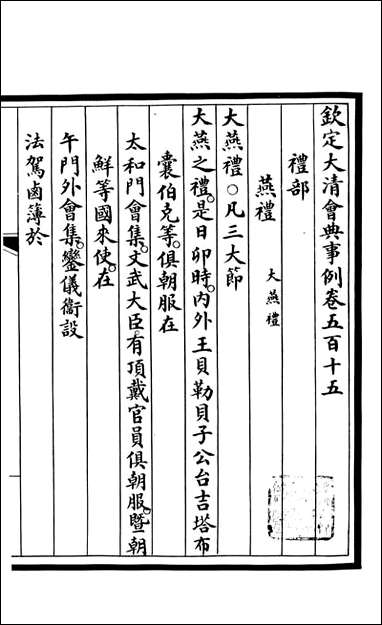 欽定大清會典事例卷五百十五
禮部
燕禮 大燕禮
大燕禮○凡三大節
大燕之禮。是日卯時。內外王貝勒貝子公台吉塔布
囊伯克等。俱朝服在
太和門會集。文武大臣。有頂戴官員俱朝服。暨朝
鮮等國來使。在
午門外會集。鑾儀衞設
法駕鹵簿於